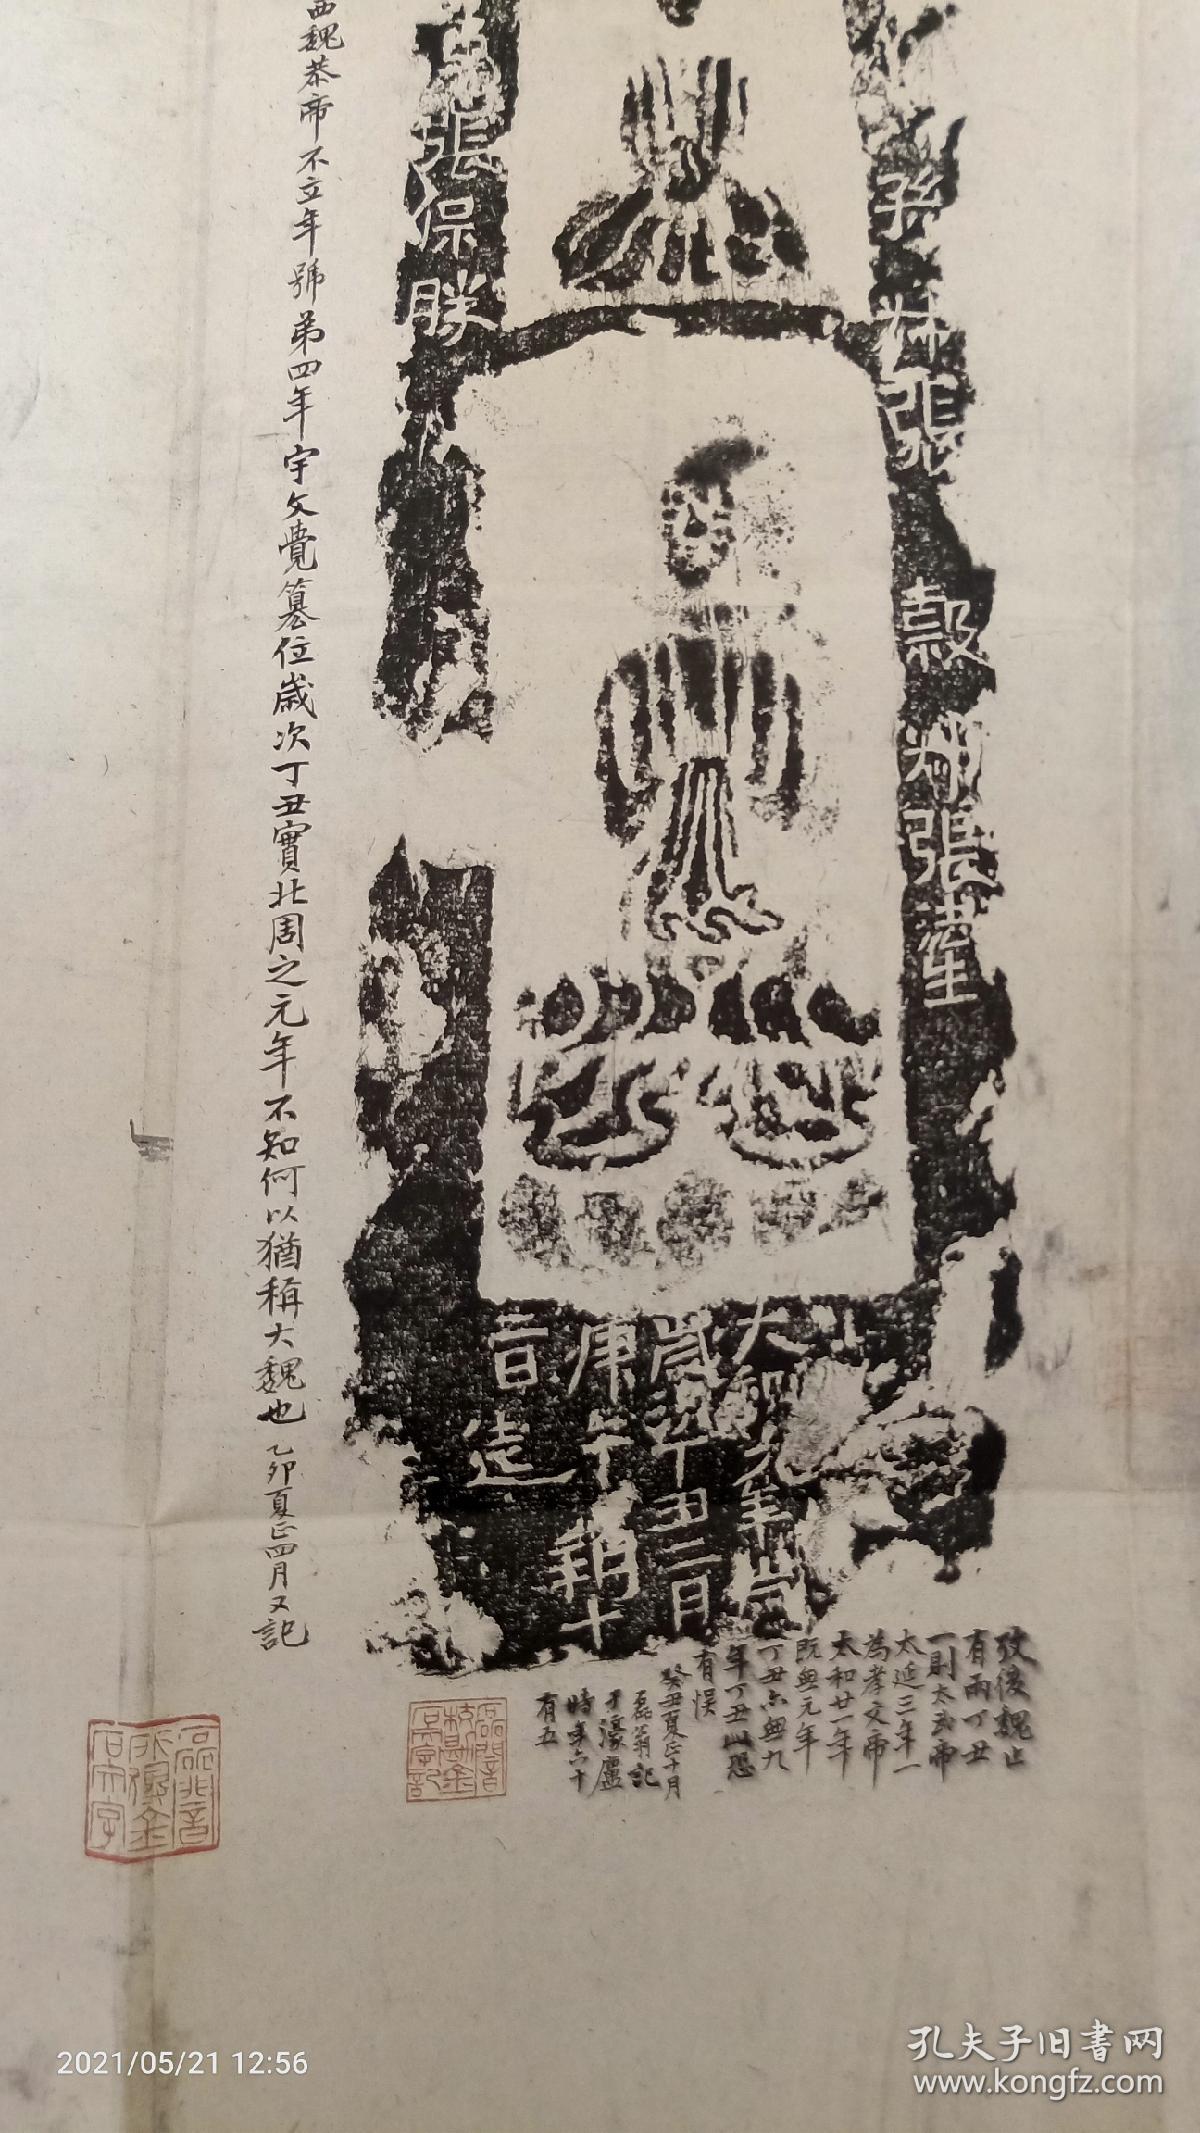 孫 州張
縠州張法生
張保勝
大魏九年歲
歲次丁丑二月
庚午朔十
一日造
攷後魏止
有兩丁丑
一則太武帝
太延三年一
為孝文帝
太和廿一年
既無元年
丁丑亦無九
年丁丑此恐
有誤
癸丑夏正十月
磊翁記
于濠廬
時年六十
有五
西魏恭帝不立年號弟四年宇文覺篡位歲次丁丑實北周之元年不知何以猶稱大魏也 乙卯夏正四月又記
2021/05/21 12:56
孔夫子旧书网
www.kongfz.com